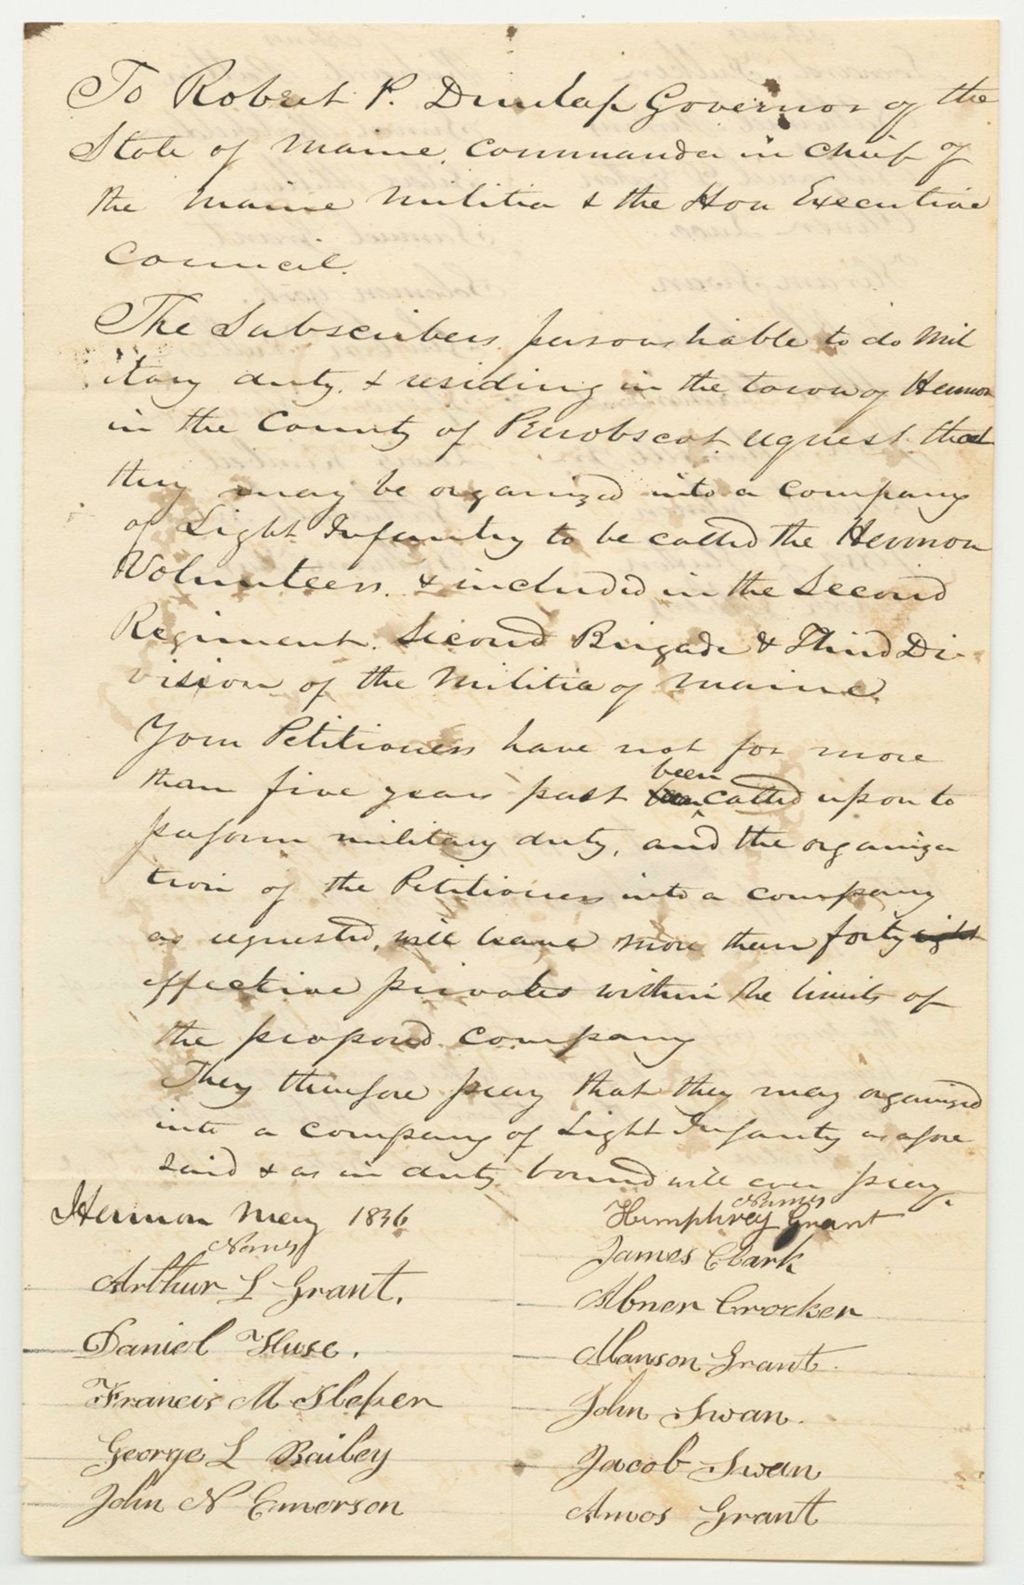 To Robert P. Dunlap Governor of the
State of Maine, Commander in Chief of
the Maine Militia & the Hon Executive
Council.
The Subscribers persons liable to do Mil
itary duty, & residing in the town of Hermon
in the County of Penobscot request that
they may be organized into a company
of Light Infantry to be called the Hermon
Volunteers, & included in the Second
Regiment, Second Brigade & Third Di-
vision of the Militia of Maine.
Your Petitioners have not for more
been
than five years past called upon to
perform military duty, and the organiza
tion of the Petitioners into a company
as requested, will leave more than forty eight
effective privates within the limits of
the proposed company
They therefore pray that they may organized
into a company of Light Infanty as afore
said & as in duty bound will ever pray.
Hermon May 1836
Names
Arthur L Grant.
Daniel Huse.
Francis M Sleper
George L Bailey
John N Emerson
Names
Humphrey Grant
James Clark
Abner Crocker
Manson Grant.
John Swan.
Jacob Swan
Amos Grant